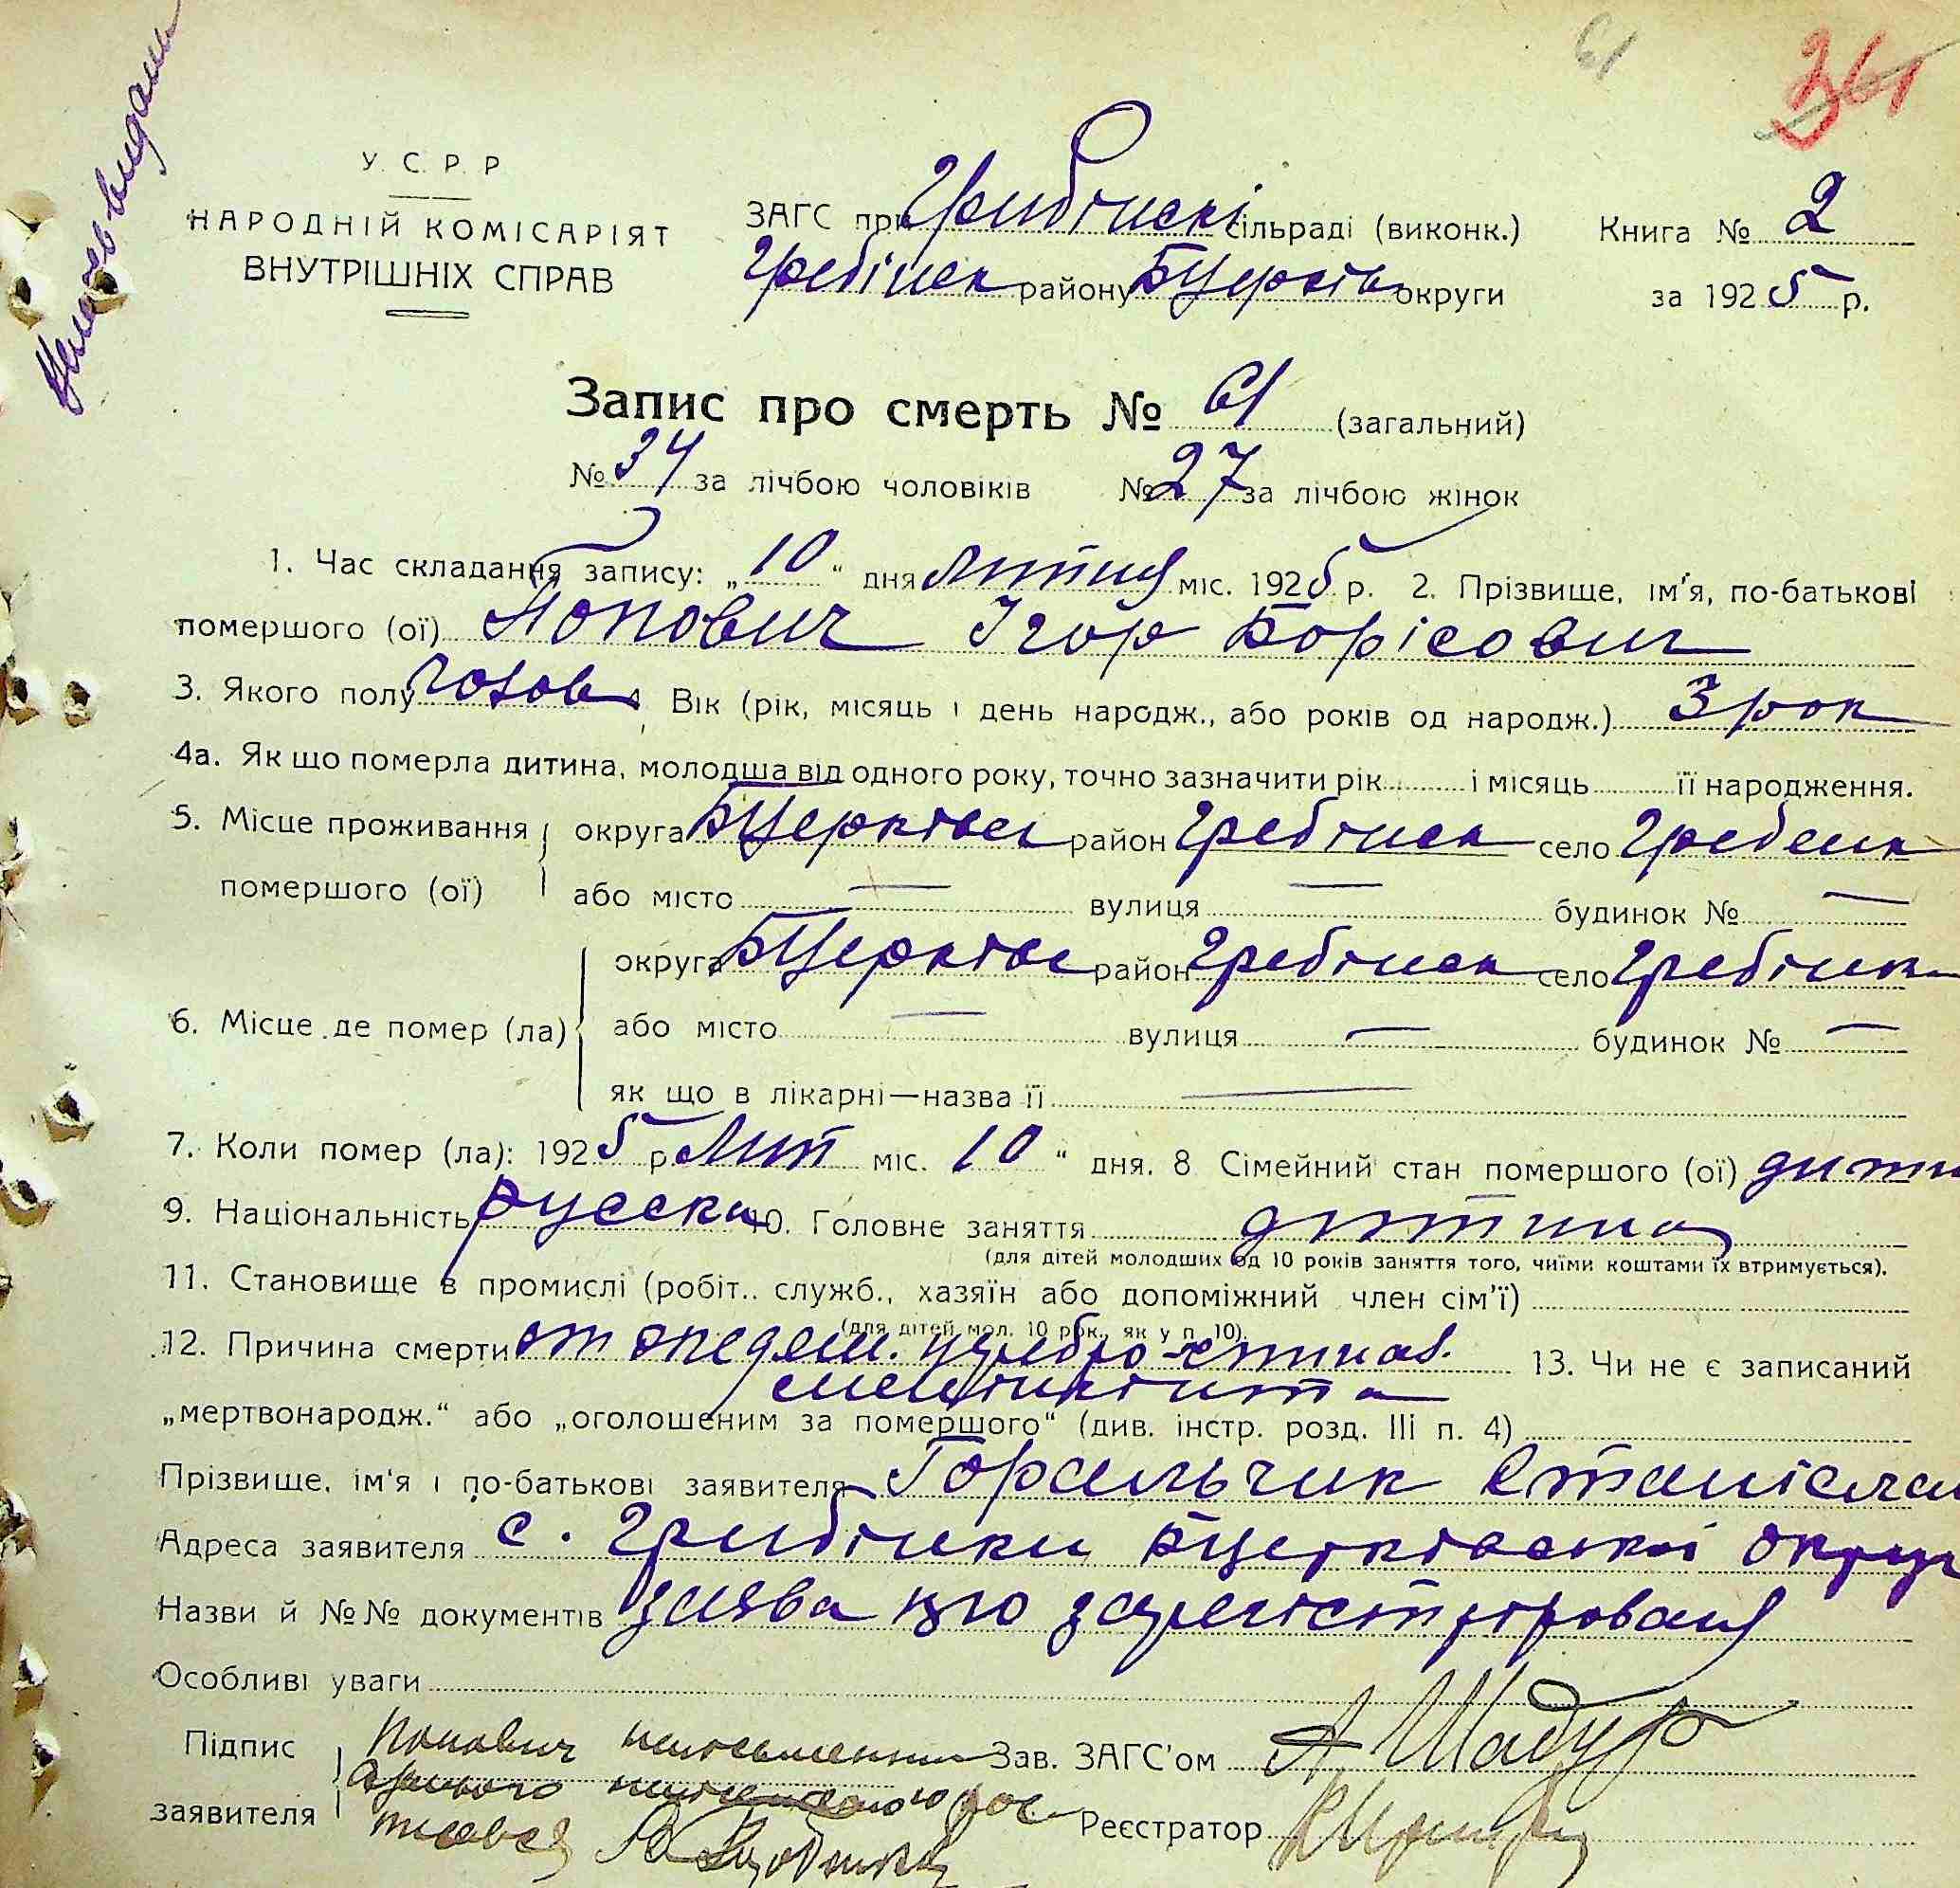 61
361
видани
У. С. Р. Р
НАРОДНІЙ КОМІСАРІЯТ
ВНУТРІШНІХ СПРАВ
ЗАГС при Грибінскі сільраді (виконк.)
Гребінск району БЦерків округи
Книга № 2
за 1925 р.
Запис про смерть № 61 (загальний)
№ 34 за лічбою чоловіків № 27 за лічбою жінок
1. Час складання запису: „10“ дня лютня міс. 1925 р. 2. Прізвище, ім'я, по-батькові
помершого (ої) Попович Ігор Борісович
3. Якого полу чолов 4 Вік (рік, місяць і день народж., або років од народж.) 3 рок
4а. Як що померла дитина, молодша від одного року, точно зазначити рік і місяць її народження.
5. Місце проживання округа БЦерківс район Гребінск село Гребенк
помершого (ої) або місто — вулиця — будинок № —
округа БЦерківс район Гребінск село Гребінк
6. Місце де помер (ла) або місто — вулиця — будинок № —
як що в лікарні—назва її —
7. Коли помер (ла): 1925 р Лют міс. 10 “ дня. 8 Сімейний стан помершого (ої) дити
9. Національність русски 10. Головне заняття дитина
(для дітей молодших од 10 років заняття того, чиїми коштами їх втримується).
11. Становище в промислі (робіт.. служб., хазяїн або допоміжний член сім'ї)
(для дітей мол. 10 рок., як у п. 10).
12. Причина смерти от эпедем. церебро-спинал. 13. Чи не є записаний
менінгіта
„мертвонародж.“ або „оголошеним за помершого“ (див. інстр. розд. III п. 4)
Прізвище, ім'я і по-батькові заявителя Горальчик Станіслав
Адреса заявителя с. Грибінки БЦерківської округ
Назви й №№ документів заява що зарегістрірованя
Особливі уваги
Підпис Попович неписьменни Зав. ЗАГС'ом А Шадур
заявителя рос Реєстратор
писався